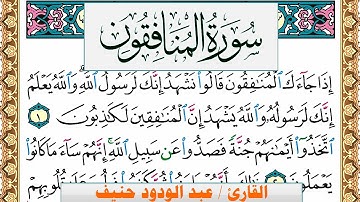 سُورَةُ الْمُنَافِقُونَ
إِذَا جَاءَكَ الْمُنَافِقُونَ قَالُوا نَشْهَدُ إِنَّكَ لَرَسُولُ اللَّهِ وَاللَّهُ يَعْلَمُ
إِنَّكَ لَرَسُولُهُ وَاللَّهُ يَشْهَدُ إِنَّ الْمُنَافِقِينَ لَكَاذِبُونَ ١
اتَّخَذُوا أَيْمَانَهُمْ جُنَّةً فَصَدُّوا عَن سَبِيلِ اللَّهِ إِنَّهُمْ سَاءَ مَا كَانُوا
يَعْمَلُونَ
القارئ / عبد الودود حنيف